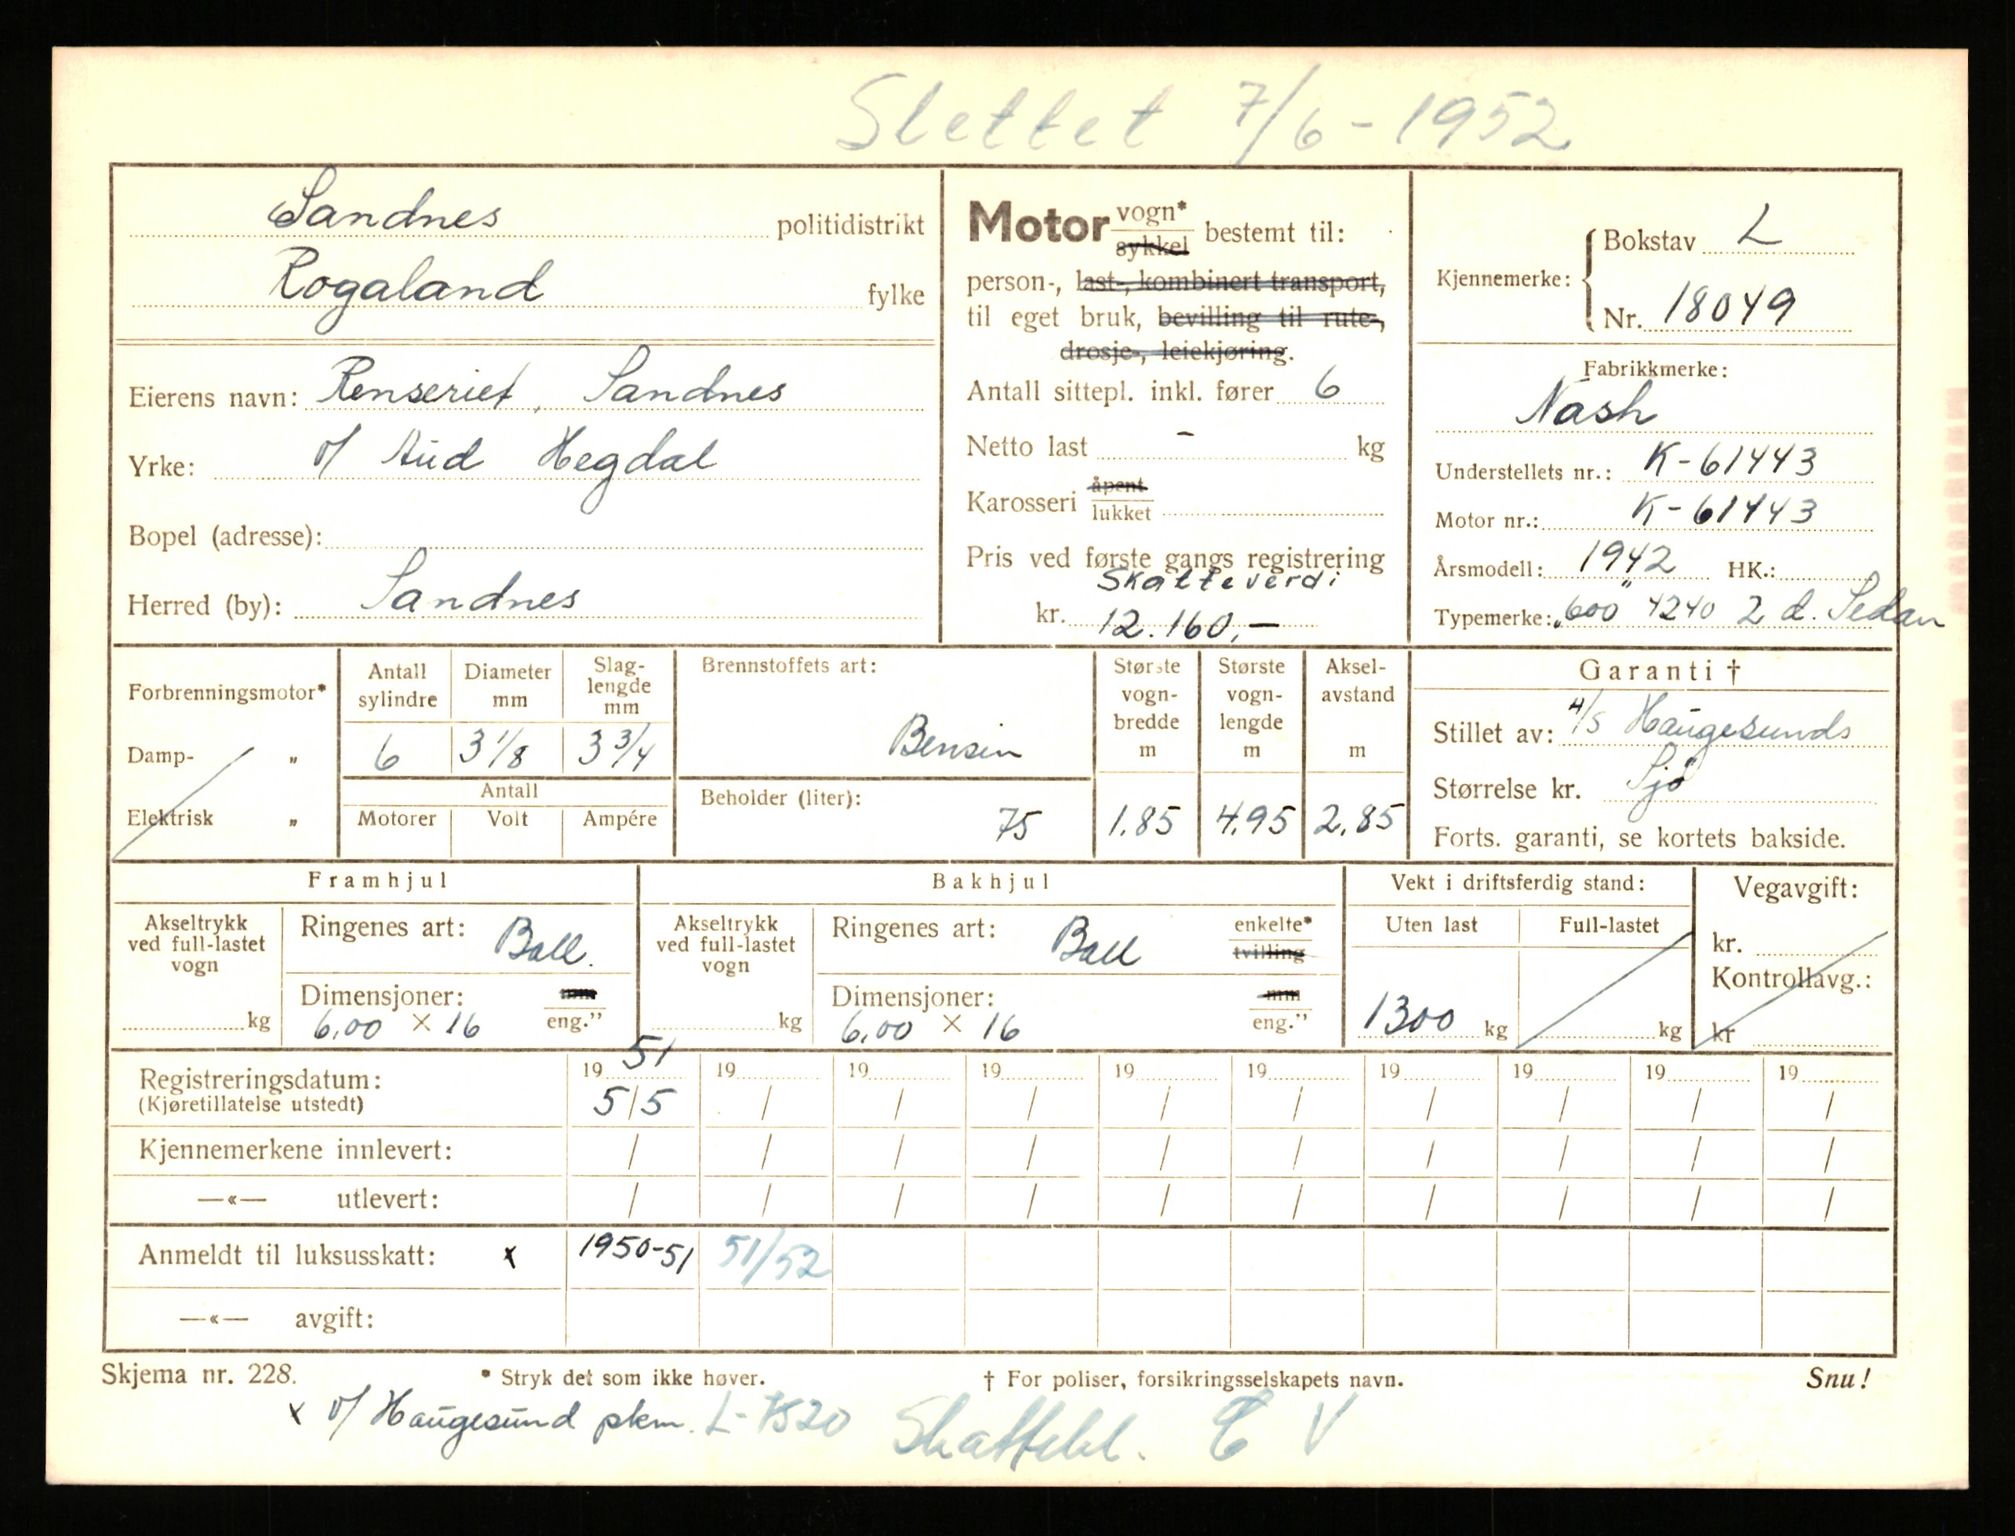 Slettet 7/6 - 1952
Sandnes politidistrikt
Rogaland fylke
Eierens navn: Renseriet, Sandnes
Yrke: v/ Aud Hegdal
Bopel (adresse):
Herred (by): Sandnes
Motor vogn* sykkel bestemt til:
person-, last-, kombinert transport,
til eget bruk, bevilling til rute-,
drosje-, leiekjøring.
Antall sittepl. inkl. fører 6
Netto last - kg
Karosseri åpent lukket
Pris ved første gangs registrering
Skatteverdi
kr. 12.160,-
Kjennemerke: Bokstav L
Nr. 18049
Fabrikkmerke:
Nash
Understellets nr.: K-61443
Motor nr.: K-61443
Årsmodell: 1942 HK.:
Typemerke: "600" 4240 2 d. Sedan
Forbrenningsmotor*
Damp- „
Elektrisk „
Antall sylindre
Diameter mm
Slag-lengde mm
6 3 1/8 3 3/4
Antall
Motorer Volt Ampére
Brennstoffets art:
Bensin
Beholder (liter):
75
Største vogn-bredde m
1.85
Største vogn-lengde m
4.95
Aksel-avstand m
2.85
Garanti †
Stillet av: A/S Haugesunds
Sjø
Størrelse kr.
Forts. garanti, se kortets bakside.
Framhjul
Akseltrykk ved full-lastet vogn
kg
Ringenes art: Ball.
Dimensjoner: mm
6.00 × 16 eng."
Bakhjul
Akseltrykk ved full-lastet vogn
kg
Ringenes art: Ball enkelte* tvilling
Dimensjoner: mm
6.00 × 16 eng."
Vekt i driftsferdig stand:
Uten last Full-lastet
1300 kg kg
Vegavgift:
kr.
Kontrollavg.:
kr
Registreringsdatum: 19 51 19 19 19 19 19 19 19 19 19
(Kjøretillatelse utstedt) 5/5 / / / / / / / / /
Kjennemerkene innlevert: / / / / / / / / / /
—«— utlevert: / / / / / / / / / /
Anmeldt til luksusskatt: x 1950-51 51/52
—«— avgift:
Skjema nr. 228. * Stryk det som ikke høver. † For poliser, forsikringsselskapets navn. Snu!
x v/ Haugesund pkm. L-7520 V